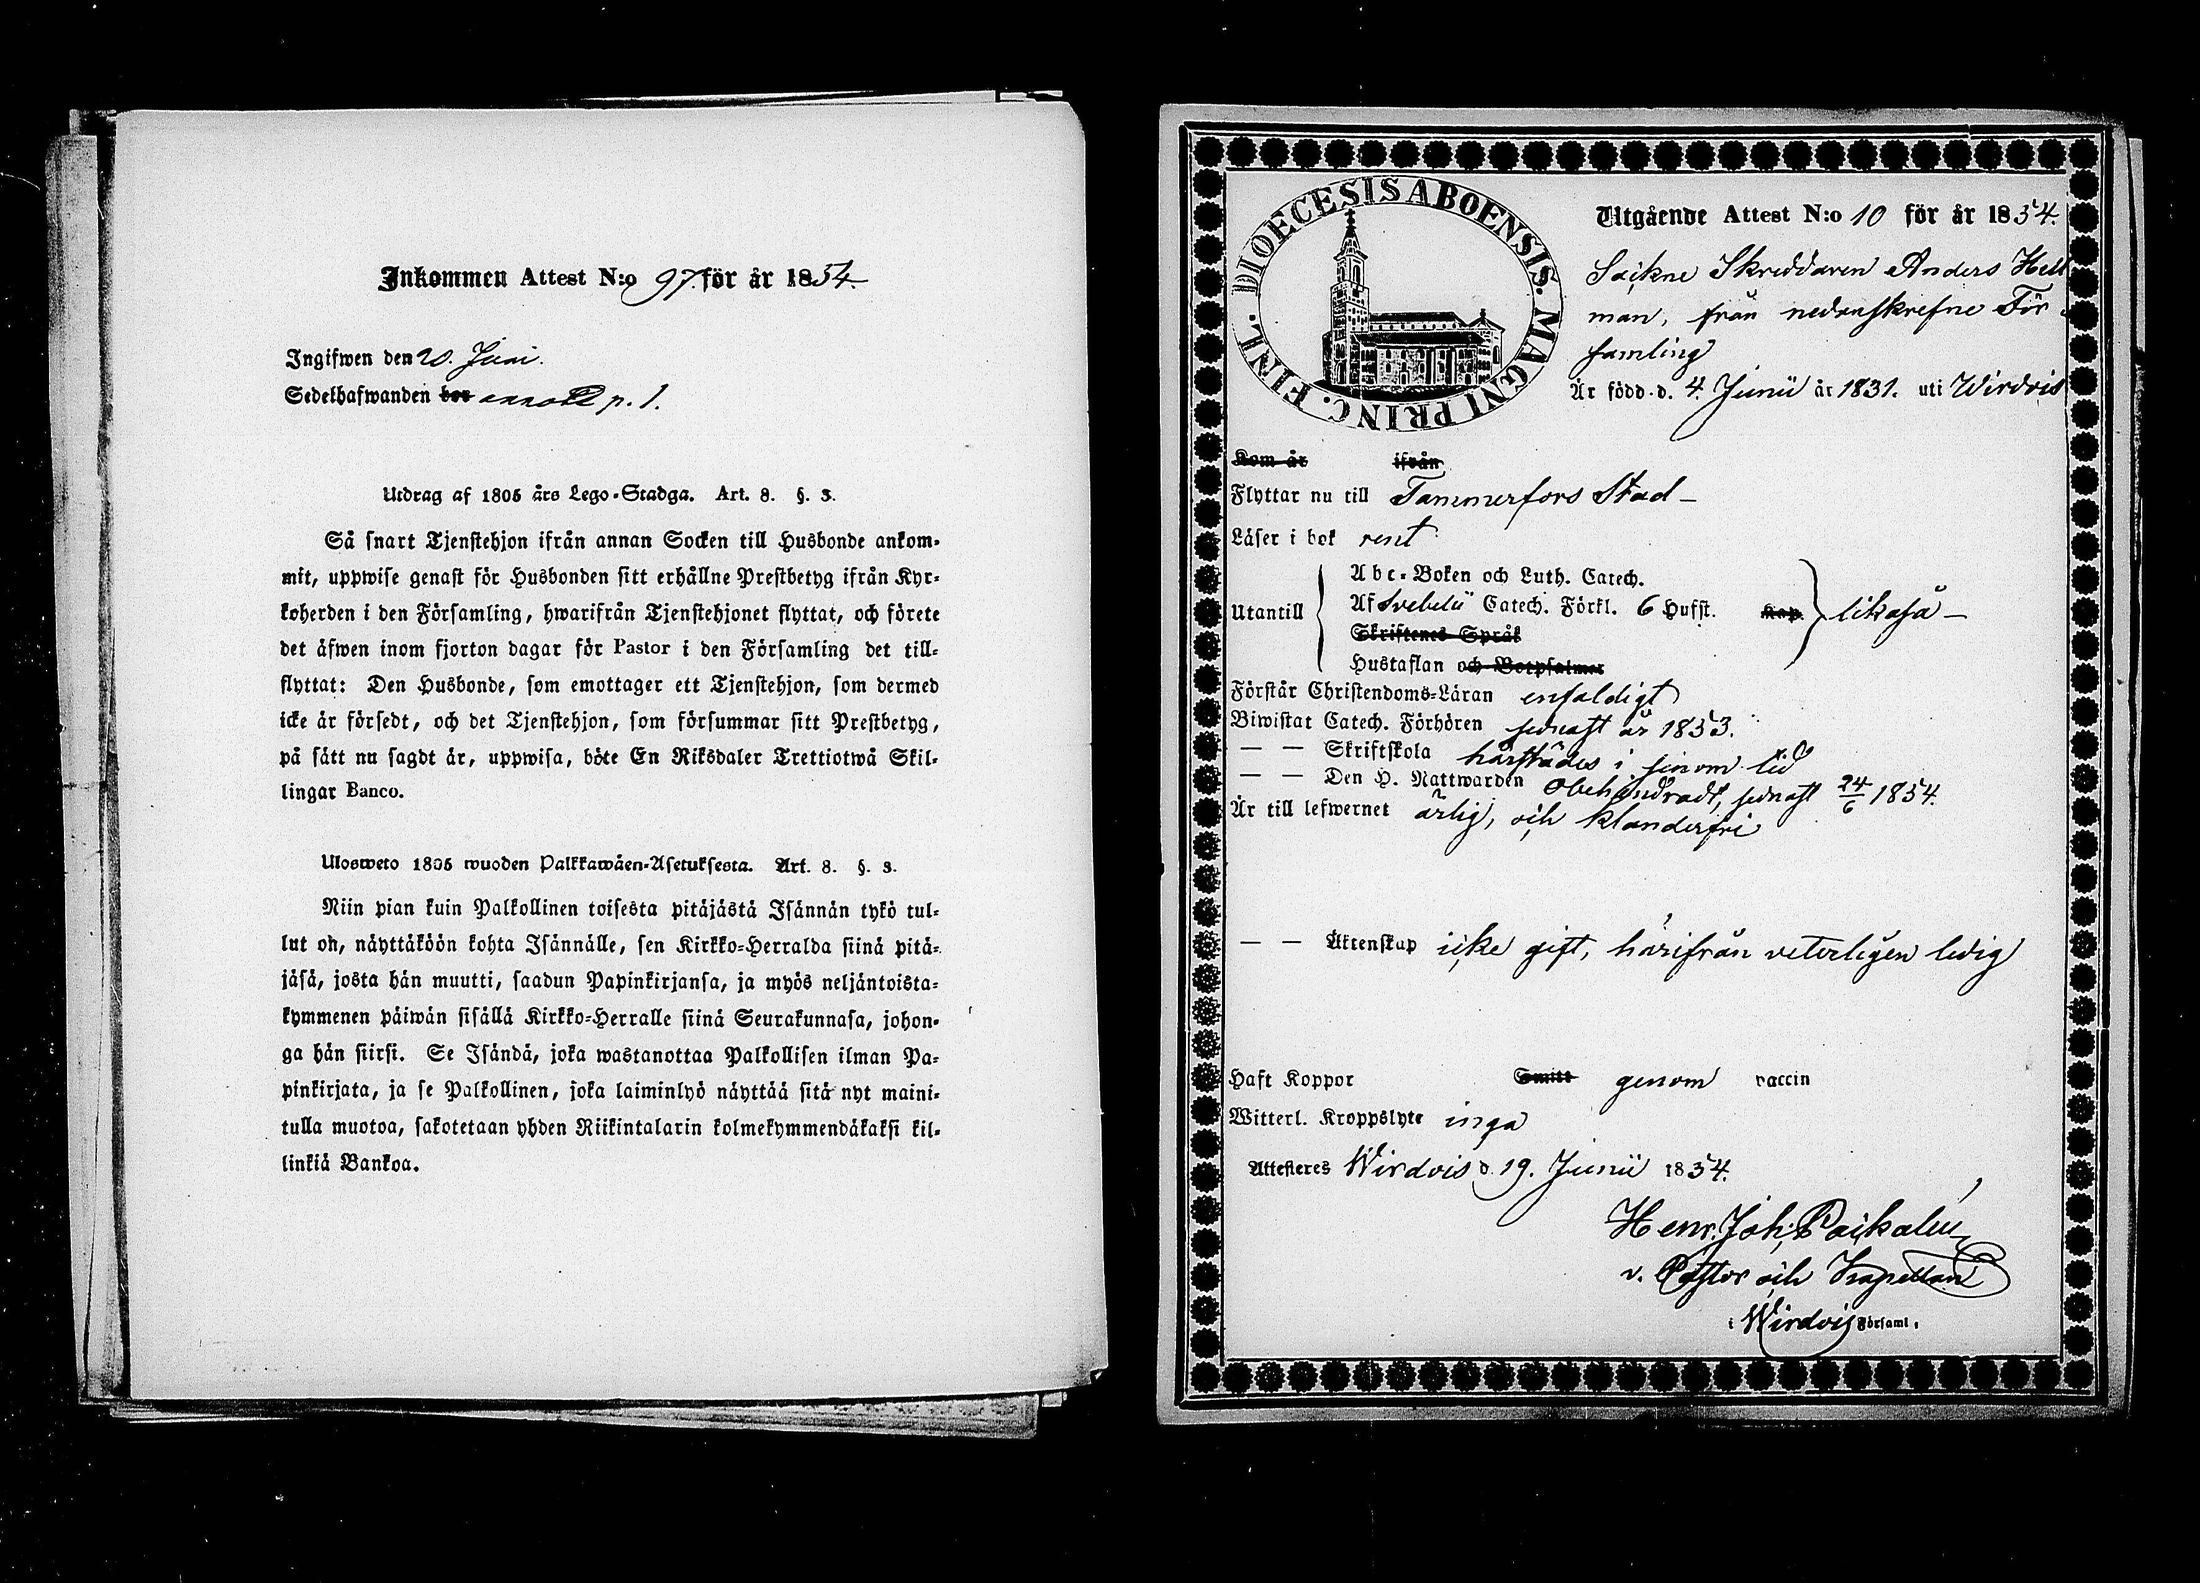 Inkommen Attest N:o 97. för år 1854.
Ingifwen den 20. Juni.
Sedelhafwanden bor annott p. 1.
Utdrag af 1805 års Lego-Stadga. Art. 8. §. 3.
Så snart Tjenstehjon ifrån annan Socken till Husbonde ankom-
mit, uppwise genast för Husbonden sitt erhållne Prestbetyg ifrån Kyr-
koherden i den Församling, hwarifrån Tjenstehjonet flyttat, och förete
det äfwen inom fjorton dagar för Pastor i den Församling det till-
flyttat: Den Husbonde, som emottager ett Tjenstehjon, som dermed
icke är försedt, och det Tjenstehjon, som försummar sitt Prestbetyg,
på sätt nu sagdt är, uppwisa, böte En Riksdaler Trettiotwå Skil-
lingar Banco.
Ulosweto 1805 wuoden Palkkawäen-Asetuksesta. Art. 8. §. 3.
Niin pian kuin Palkollinen toisesta pitäjästä Isännän tykö tul-
lut on, näyttäköön kohta Isännälle, sen Kirkko-Herralda siinä pitä-
jäsä, josta hän muutti, saadun Papinkirjansa, ja myös neljäntoista-
kymmenen päiwän sisällä Kirkko-Herralle siinä Seurakunnasa, johon-
ga hän siirsi. Se Isändä, joka wastanottaa Palkollisen ilman Pa-
pinkirjata, ja se Palkollinen, joka laiminlyö näyttää sitä nyt maini-
tulla muotoa, sakotetaan yhden Riikintalarin kolmekymmendäkaksi kil-
linkiä Bankoa.
DIOECESIS ABOENSIS. MAGNI PRINC. FINL.
Utgående Attest N:o 10 för år 1854.
Sockne Skreddaren Anders Hell
man, från nedanskrefne För
samling
Är född d. 4. Junii år 1831. uti Wirdois
Kom år ifrån
Flyttar nu till Tammerfors Stad –
Läser i bok rent
Utantill
Abc-Boken och Luth. Catech.
Af Svebelii Catech. Förkl. 6 Hufst. Kap. likaså –
Skriftenes Språk
Hustaflan och Botpsalmer
Förstår Christendoms-Läran enfaldigt
Biwistat Catech. Förhören sednast år 1853.
— — Skriftskola härstädes i sinom tid
— — Den H. Nattwarden obehindradt, sednast 24/6 1854.
Är till lefwernet ärlig, och klanderfri
— — Äktenskap icke gift, härifrån veterligen ledig
Haft Koppor Smitt genom vaccin
Witterl. Kroppslyte inga
Attesteres Wirdois d. 19. Junii 1854.
Henr. Joh.
v. Pastor och Kapellan
i Wirdois Församl.